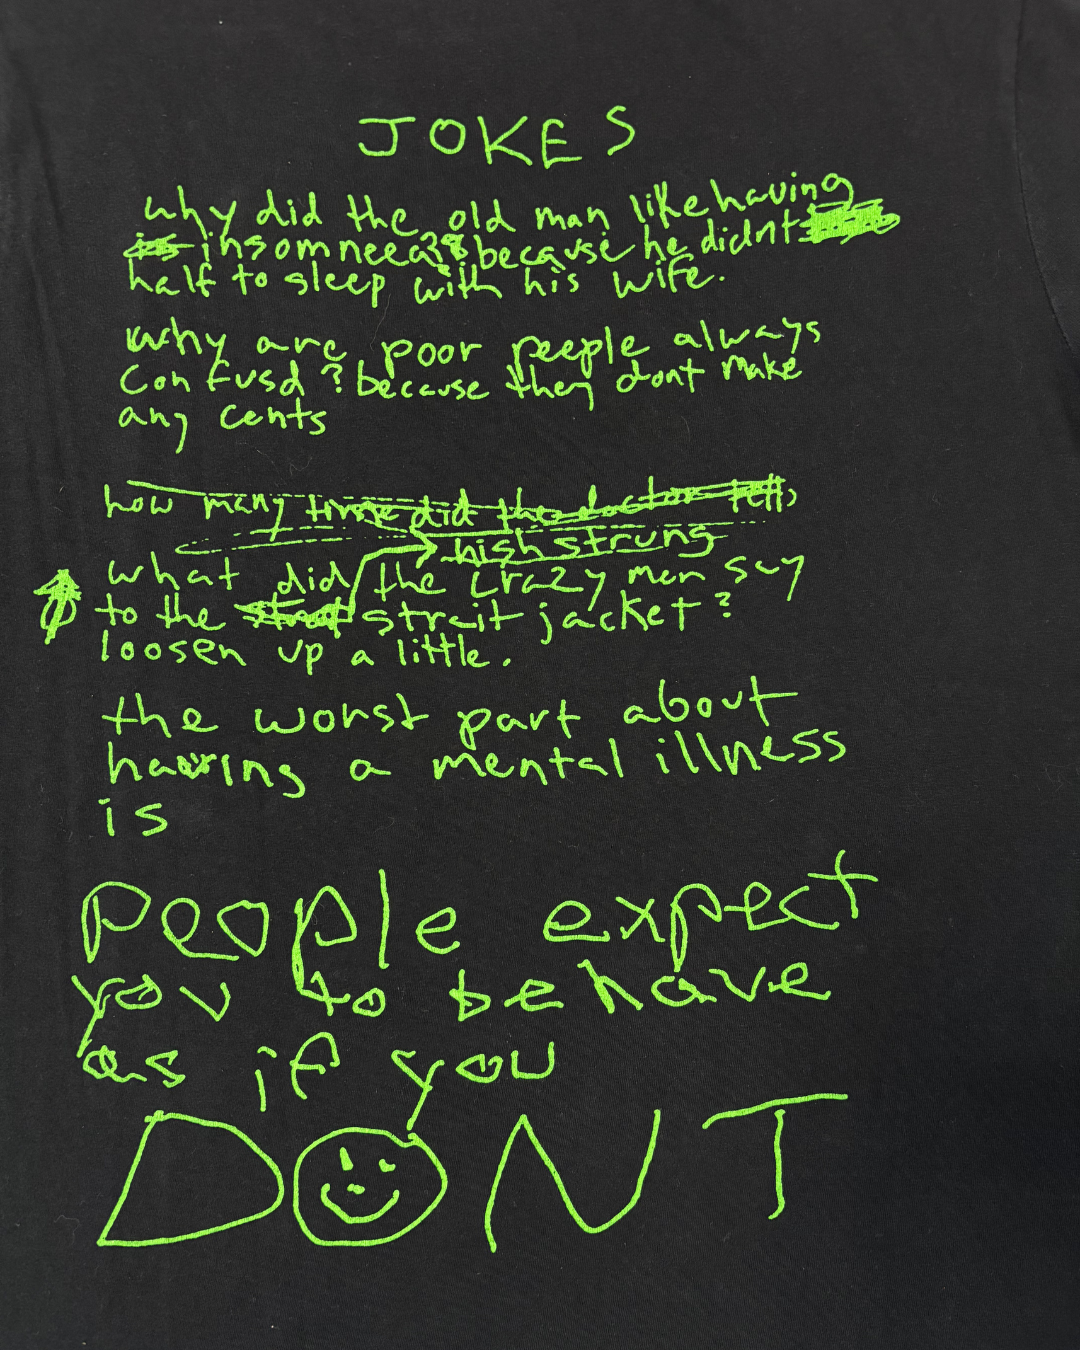 JOKES
why did the old man like having
insomneea? because he didnt
half to sleep with his wife.
why are poor peeple always
confusd? because they dont make
any cents
how many times did the doctor tell
high strung
what did the crazy man say
to the strait jacket?
loosen up a little.
the worst part about
having a mental illness
is
people expect
you to behave
as if you
DONT